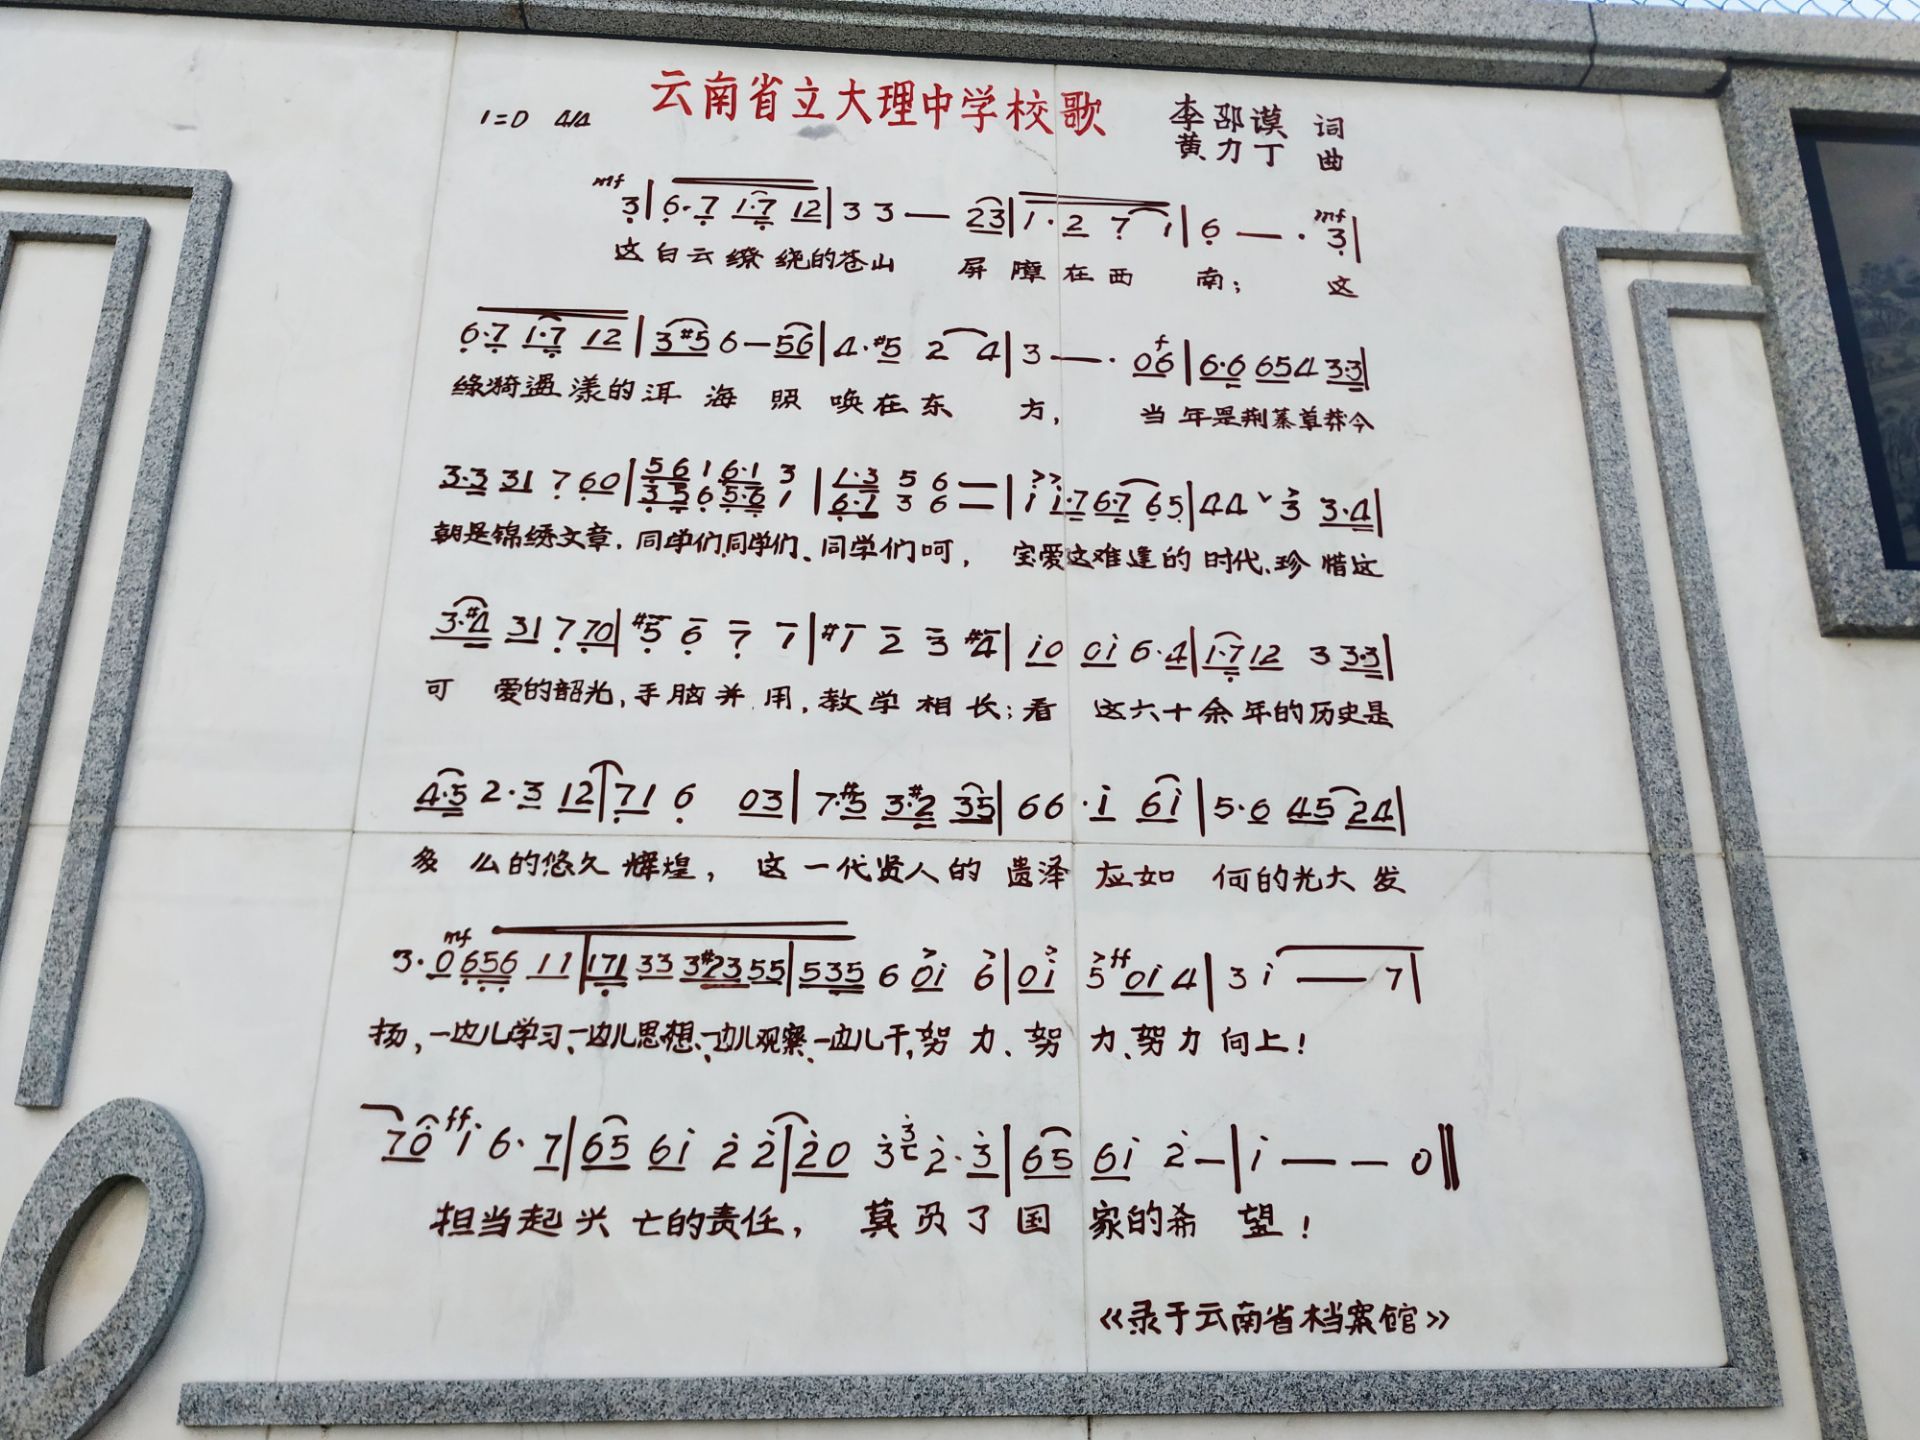 云南省立大理中学校歌
1=D 4/4
李邵谟 词
黄力丁 曲
mf 3|6·7 1·7 12|3 3 — 23|1·2 7 1|6 — · mf 3|
这白云缭绕的苍山 屏障在西 南; 这
6·7 1·7 12|3#5 6—56|4·#5 2 4|3 — · 0f6|6·6 654 3·3|
漾的洱海 照 唤在东 方, 当年是荆蓁草莽今
3·3 31 7 60|5 6 1 6·1 3|1·3 5 6 —|i i·7 6·7 65|44ˇ3 3·4|
3 5 6 5·6 1|6·1 3 6 —
朝是锦绣文章.同学们,同学们、同学们呵, 宝爱这难逢的时代、珍惜这
3·#4 31 7 70|#5 6 7 1|#1 2 3 #4|i0 0i 6·4|1·7 12 3 3·3|
可 爱的韶光,手脑并用,教学相长;看 这六十余年的历史是
4·5 2·3 12|71 6 03|7·#5 3·#2 35|66·i 6i|5·6 45 24|
多 么的悠久辉煌, 这一代贤人的遗泽应如 何的光大发
3·0 mf 656 11|171 33 3#23 55|535 6 0i 6|0i 5 ff 0i 4|3 i — 7|
扬,一边儿学习、一边儿思想、一边儿观察、一边儿干,努力、努力、努力向上!
70 ff i 6·7|65 6i 2 2|20 3 3 2·3|65 6i 2—|i — — 0‖
担当起兴亡的责任, 莫负了国 家的希 望!
《录于云南省档案馆》